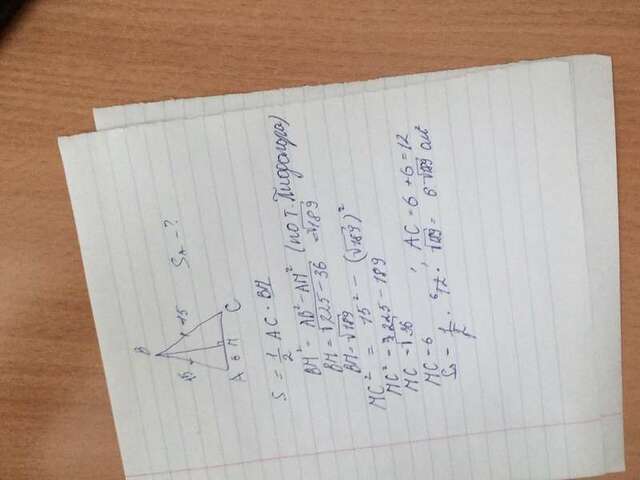 B
15 15
A 6 H C
S△ - ?
S = 1/2 AC · BH
BH² = AB² - AH² (по т. Пифагора)
BH = √225 - 36 = √189
BH = √189
HC² = 15² - (√189)²
HC² = 225 - 189
HC = √36
HC = 6 ; AC = 6 + 6 = 12
S△ = 1/2 · 12 · √189 = 6√189 см²